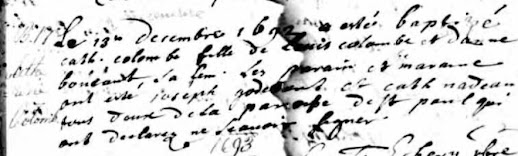 Le 13e decembre 1692 a estée baptizé
cath. colombe fille de Louis colombe et
sa fem. Les parain et maraine
ont esté joseph et cath nadeau
tous deux de la paroisse de st paul qui
ont declarez ne scavoir signer
1693
Colomb